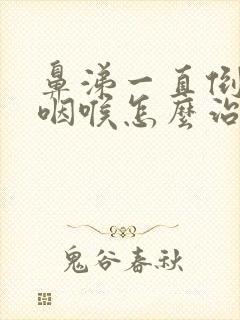 鼻涕一直倒
咽喉怎麼治
鬼谷春秋